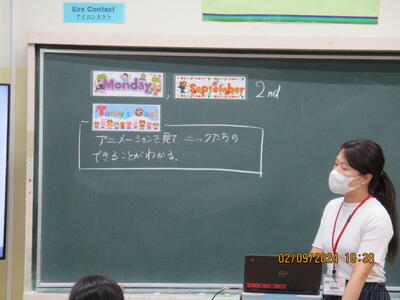 Eye Contact
アイコンタクト
Monday, September 2nd
Today's Goal
アニメーションを見て、ニックたちの
できることがわかる。
02/09/2024 10:38
DELL